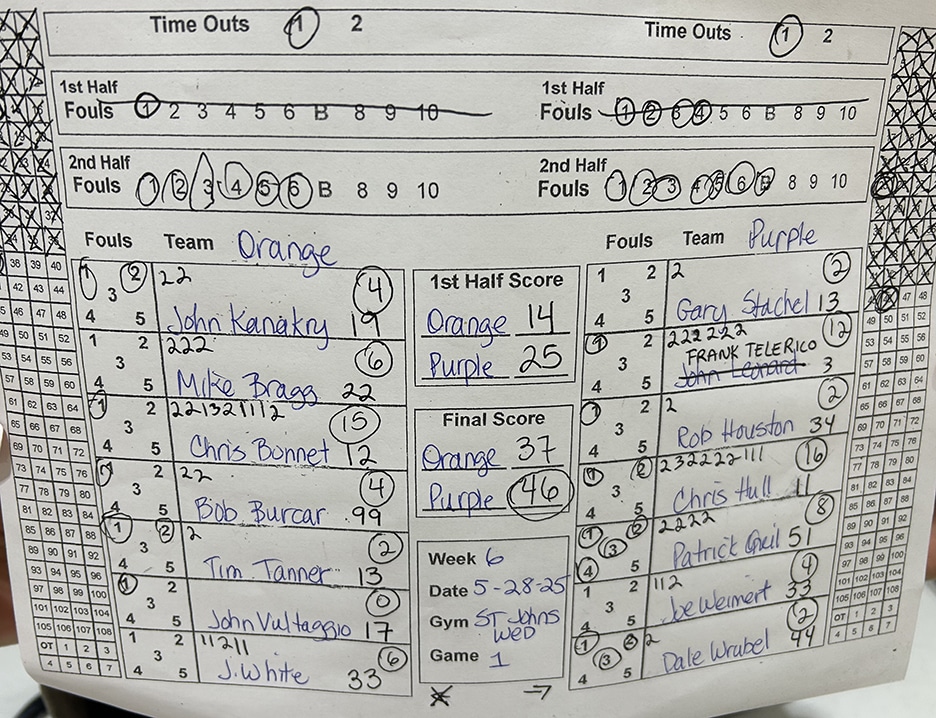 Time Outs 1 2
Time Outs 1 2
1st Half
Fouls 1 2 3 4 5 6 B 8 9 10
1st Half
Fouls 1 2 3 4 5 6 B 8 9 10
2nd Half
Fouls 1 2 3 4 5 6 B 8 9 10
2nd Half
Fouls 1 2 3 4 5 6 B 8 9 10
Fouls Team Orange
1 2 22 4
3
4 5 John Kanakry 19
1 2 222 6
3
4 5 Mike Bragg 22
1 2 221321112 15
3
4 5 Chris Bonnet 12
1 2 22 4
3
4 5 Bob Burcar 99
1 2 2 2
3
4 5 Tim Tanner 13
1 2 0
3
4 5 John Vultaggio 17
1 2 11211 6
3
4 5 J. White 33
1st Half Score
Orange 14
Purple 25
Final Score
Orange 37
Purple 46
Week 6
Date 5-28-25
Gym ST Johns
WED
Game 1
Fouls Team Purple
1 2 2 2
3
4 5 Gary Stachel 13
1 2 222222 12
3 FRANK TELERICO
4 5 John Leonard 3
1 2 2 2
3
4 5 Rob Houston 34
1 2 232222111 16
3
4 5 Chris Hull 11
1 2 2222 8
3
4 5 Patrick Gneil 51
1 2 112 4
3
4 5 Joe Weimert 33
1 2 2 2
3
4 5 Dale Wrubel 44
38 39 40
42 43 44
45 46 47 48
49 50 51 52
53 54 55 56
57 58 59 60
61 62 63 64
65 66 67 68
69 70 71 72
73 74 75 76
77 78 79 80
81 82 83 84
85 86 87 88
89 90 91 92
93 94 95 96
97 98 99 100
101 102 103 104
105 106 107 108
OT 1 2 3
4 5 6 7
47 48
49 50 51 52
53 54 55 56
57 58 59 60
61 62 63 64
65 66 67 68
69 70 71 72
73 74 75 76
77 78 79 80
81 82 83 84
85 86 87 88
89 90 91 92
93 94 95 96
97 98 99 100
101 102 103 104
105 106 107 108
OT 1 2 3
4 5 6 7